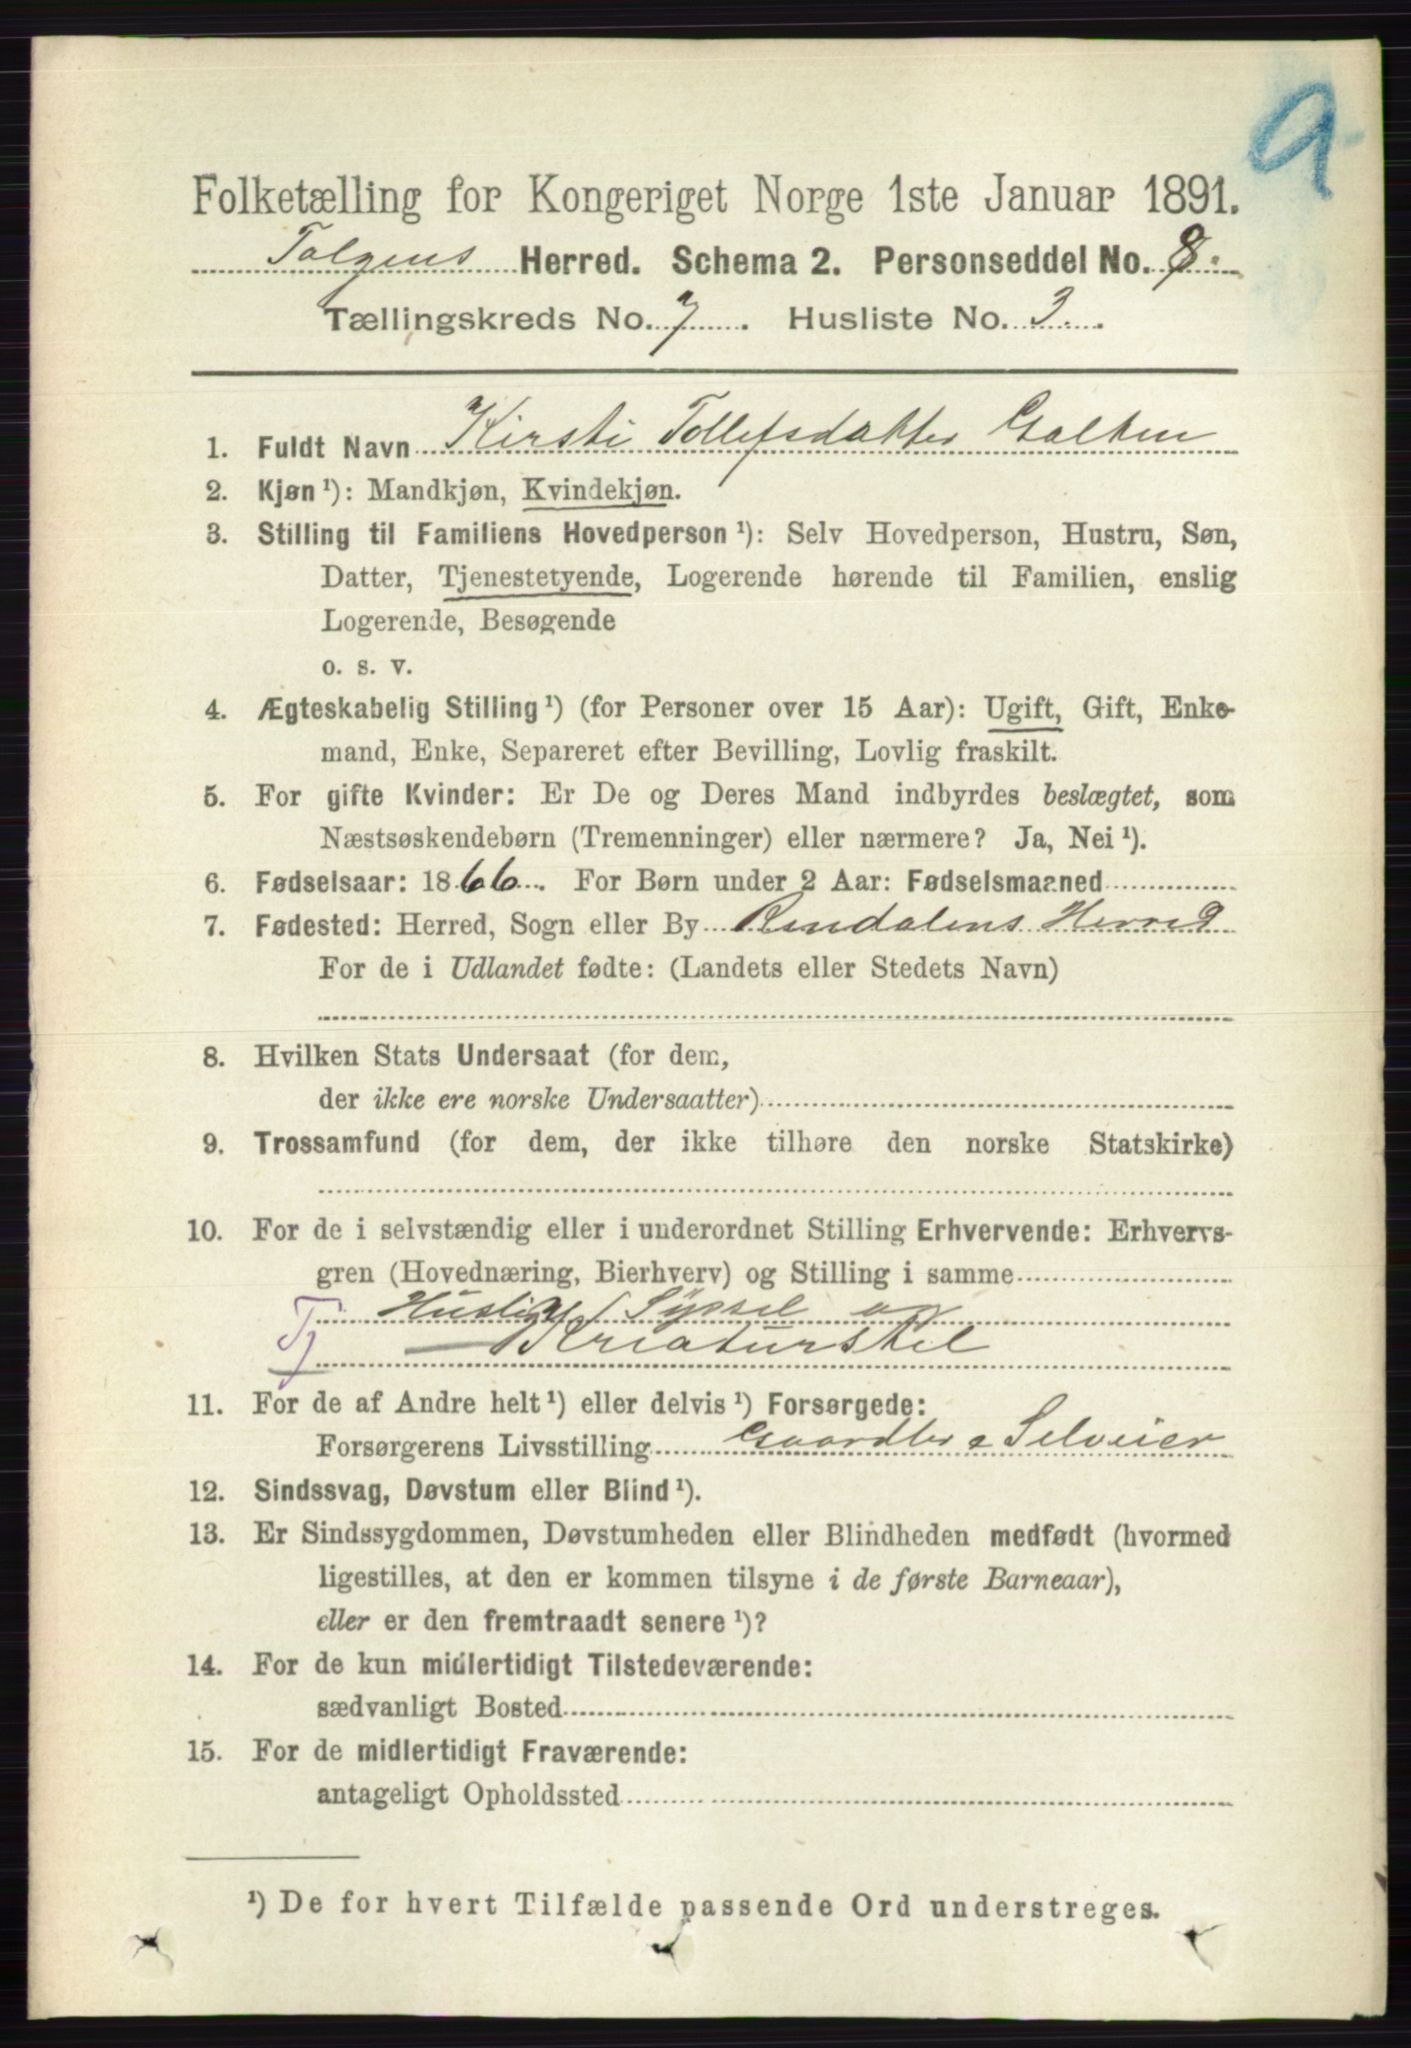 9
Folketælling for Kongeriget Norge 1ste Januar 1891.
Tolgens Herred. Schema 2. Personseddel No. 8.
Tællingskreds No. 7. Husliste No. 3.
1. Fuldt Navn Kirsti Tollefsdatter Galten
2. Kjøn ¹): Mandkjøn, Kvindekjøn.
3. Stilling til Familiens Hovedperson ¹): Selv Hovedperson, Hustru, Søn,
Datter, Tjenestetyende, Logerende hørende til Familien, enslig
Logerende, Besøgende
o. s. v.
4. Ægteskabelig Stilling ¹) (for Personer over 15 Aar): Ugift, Gift, Enke-
mand, Enke, Separeret efter Bevilling, Lovlig fraskilt.
5. For gifte Kvinder: Er De og Deres Mand indbyrdes beslægtet, som
Næstsøskendebørn (Tremenninger) eller nærmere? Ja, Nei ¹).
6. Fødselsaar: 1866. For Børn under 2 Aar: Fødselsmaaned
7. Fødested: Herred, Sogn eller By Rendalens Herred
For de i Udlandet fødte: (Landets eller Stedets Navn)
8. Hvilken Stats Undersaat (for dem,
der ikke ere norske Undersaatter)
9. Trossamfund (for dem, der ikke tilhøre den norske Statskirke)
10. For de i selvstændig eller i underordnet Stilling Erhvervende: Erhvervs-
gren (Hovednæring, Bierhverv) og Stilling i samme
Huslig Syssel og
Tj Kreaturstel
11. For de af Andre helt ¹) eller delvis ¹) Forsørgede:
Forsørgerens Livsstilling Gaardbr Selveier
12. Sindssvag, Døvstum eller Blind ¹).
13. Er Sindssygdommen, Døvstumheden eller Blindheden medfødt (hvormed
ligestilles, at den er kommen tilsyne i de første Barneaar),
eller er den fremtraadt senere ¹)?
14. For de kun midlertidigt Tilstedeværende:
sædvanligt Bosted
15. For de midlertidigt Fraværende:
antageligt Opholdssted
¹) De for hvert Tilfælde passende Ord understreges.